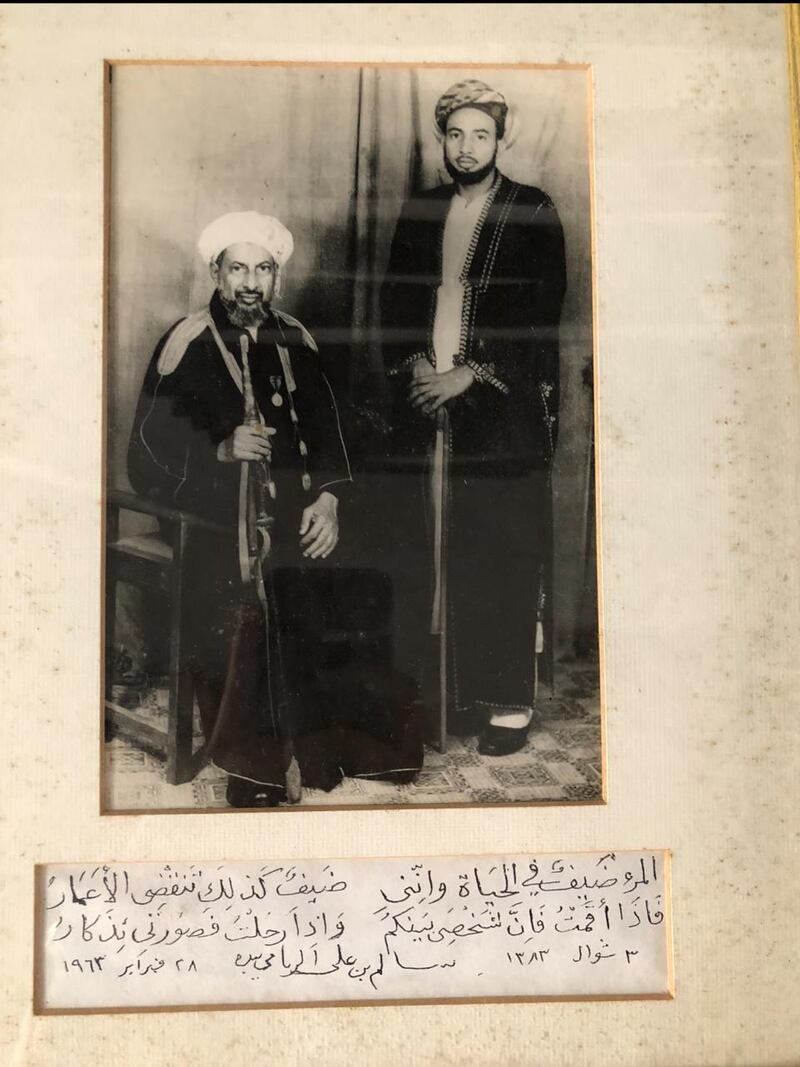 المرؤ ضَيفٌ في الحَيَاة وانّني ضَيفٌ كَذلِكَ تَنقَضِي الأعمَارُ
فَاذَا أقَمْتُ فَانَّ شَخْصِي بَينَكُم وَاذا رَحَلتُ فَصُورَتي تِذكارُ
٣ شوال ١٣٨٣ سالم بن علي الريامي بيده ٢٨ فبراير ١٩٦٣